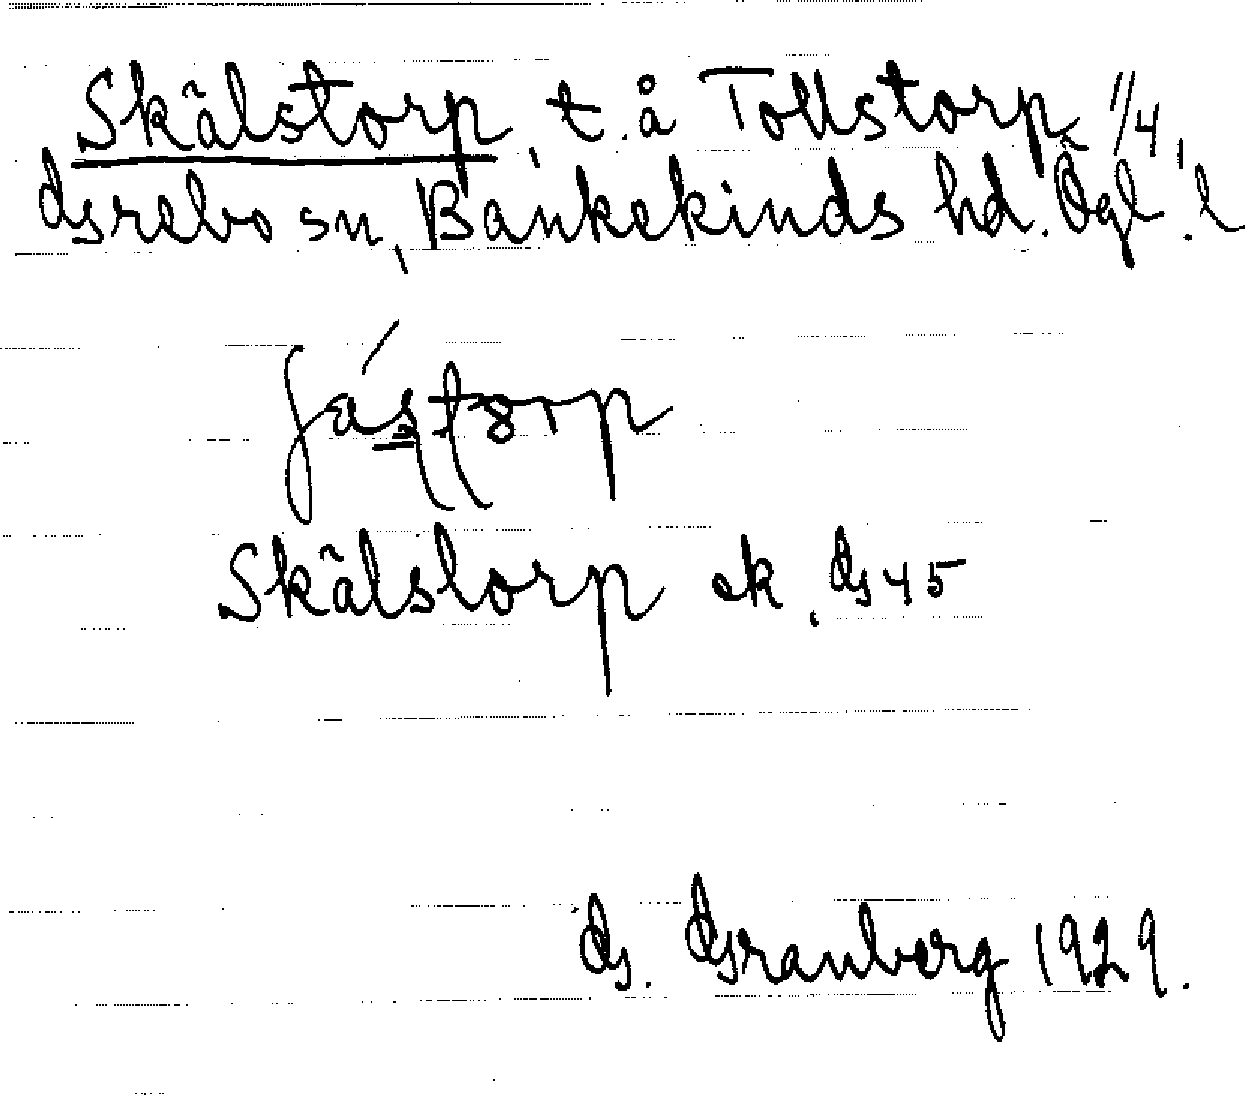 Skälstorp, t. å Tollstorp 1/4,
Grebo sn, Bankekinds hd. Ögl. l
Skälstorp ek. G 45
G. Granberg 1929.